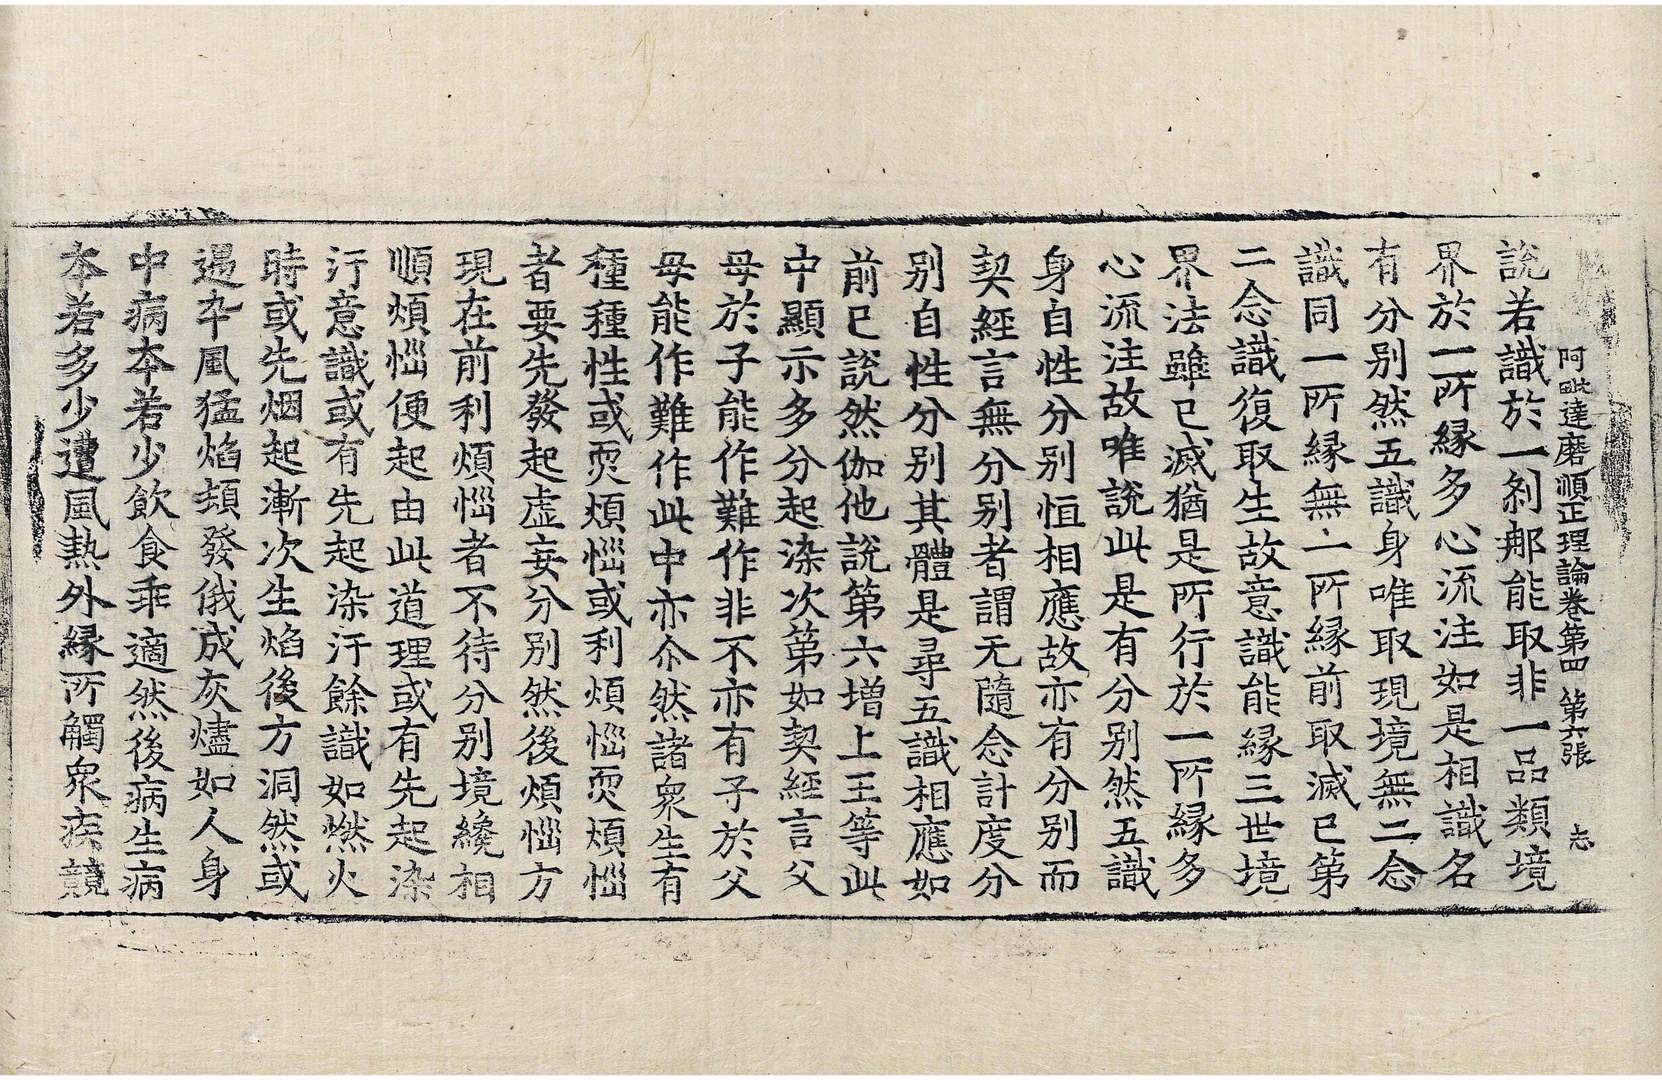 阿毗達磨順正理論卷第四 第六張 志
說若識於一刹那能取非一品類境
界於一所緣多心流注如是相識名
有分別然五識身唯取現境無二念
識同一所緣無一所緣前取滅已第
二念識復取生故意識能緣三世境
界法雖已滅猶是所行於一所緣多
心流注故唯說此是有分別然五識
身自性分別恒相應故亦有分別而
契經言無分別者謂无隨念計度分
別自性分別其體是尋五識相應如
前已說然伽他說第六增上王等此
中顯示多分起染次第如契經言父
母於子能作難作非不亦有子於父
母能作難作此中亦尒然諸衆生有
種種性或耎煩惱或利煩惱耎煩惱
者要先發起虛妄分別然後煩惱方
現在前利煩惱者不待分別境纔相
順煩惱便起由此道理或有先起染
汙意識或有先起染汙餘識如燃火
時或先烟起漸次生焰後方洞然或
遇卒風猛焰頓發俄成灰燼如人身
中病本若少飲食乖適然後病生病
本若多少遭風熱外緣所觸衆疾競